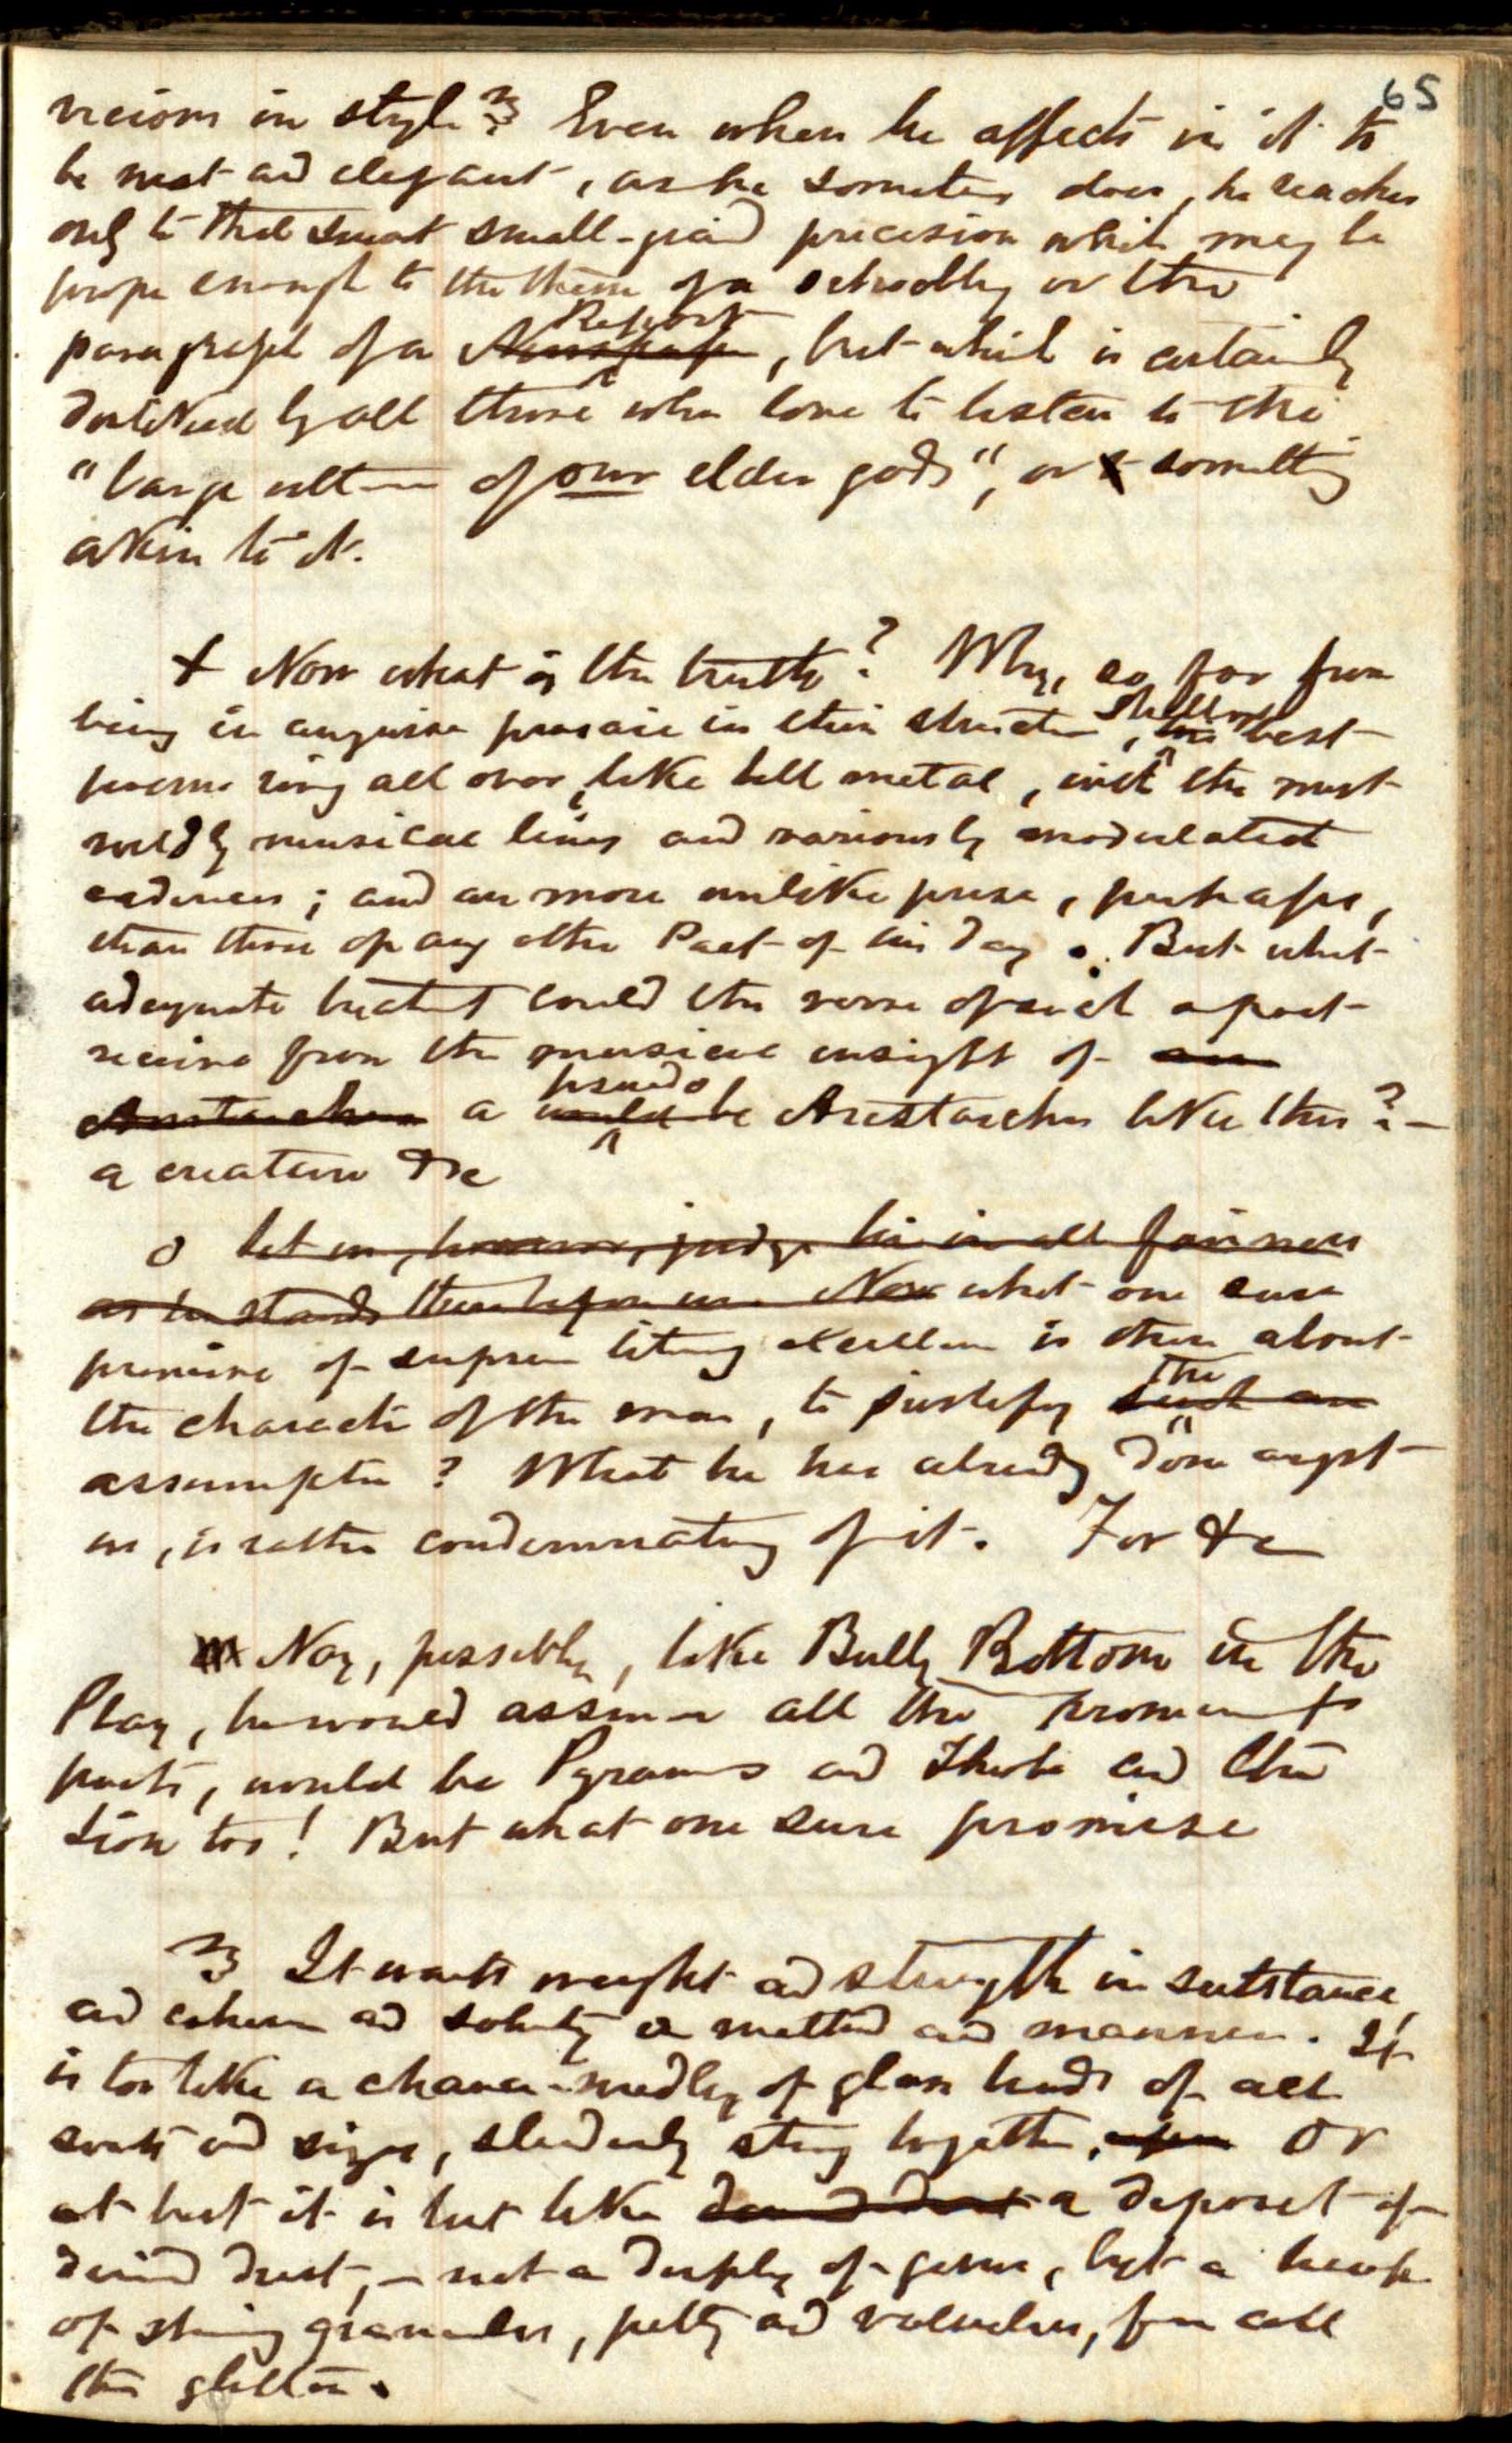 65
vicious in style. Even when he affects in it to
be neat and elegant, as he sometimes does, he reaches
only to that smart small-pica precision which may be
proper enough to the theme of a schoolboy or the
Report
paragraph of a Newspaper, but which is certainly
by all those who love to listen to the
"large utterance of our elder gods", or something
akin to it.
+ Now what is the truth? Why, so far from
Shelley's
being in anywise prosaic in their structure, his best
poems ring all over, like bell metal, with the most
wildly musical lines and variously modulated
cadences; and are more unlike prose, perhaps,
than those of any other Poet of his day. But what
adequate treatment could the verse of such a poet
receive from the musical insight of an
pseudo
Aristarchus a would be Aristarchus like this?—
a creature &c
o Let us, however, judge him in all fairness
as he stands there before us. Now what one sure
promise of supreme literary excellence is there about
the
the character of the man, to justify such an
assumption? What he has already done amongst
us, is rather condemnatory of it. For &c
Nay, possibly, like Bully Bottom in the
Play, he would assume all the prominent
parts, would be Pyramus and Thisbe and the
Lion too! But what one sure promise
3 It wants weight and strength in substance,
and coherence and solidity in matter and manner. It
is too like a chance-medley of glass beads of all
sorts and sizes, slenderly strung together, or
at best it is but like diamond dust a deposit of
diamond dust, — not a display of gems, but a heap
of shining granules, petty and valueless, for all
their glitter.